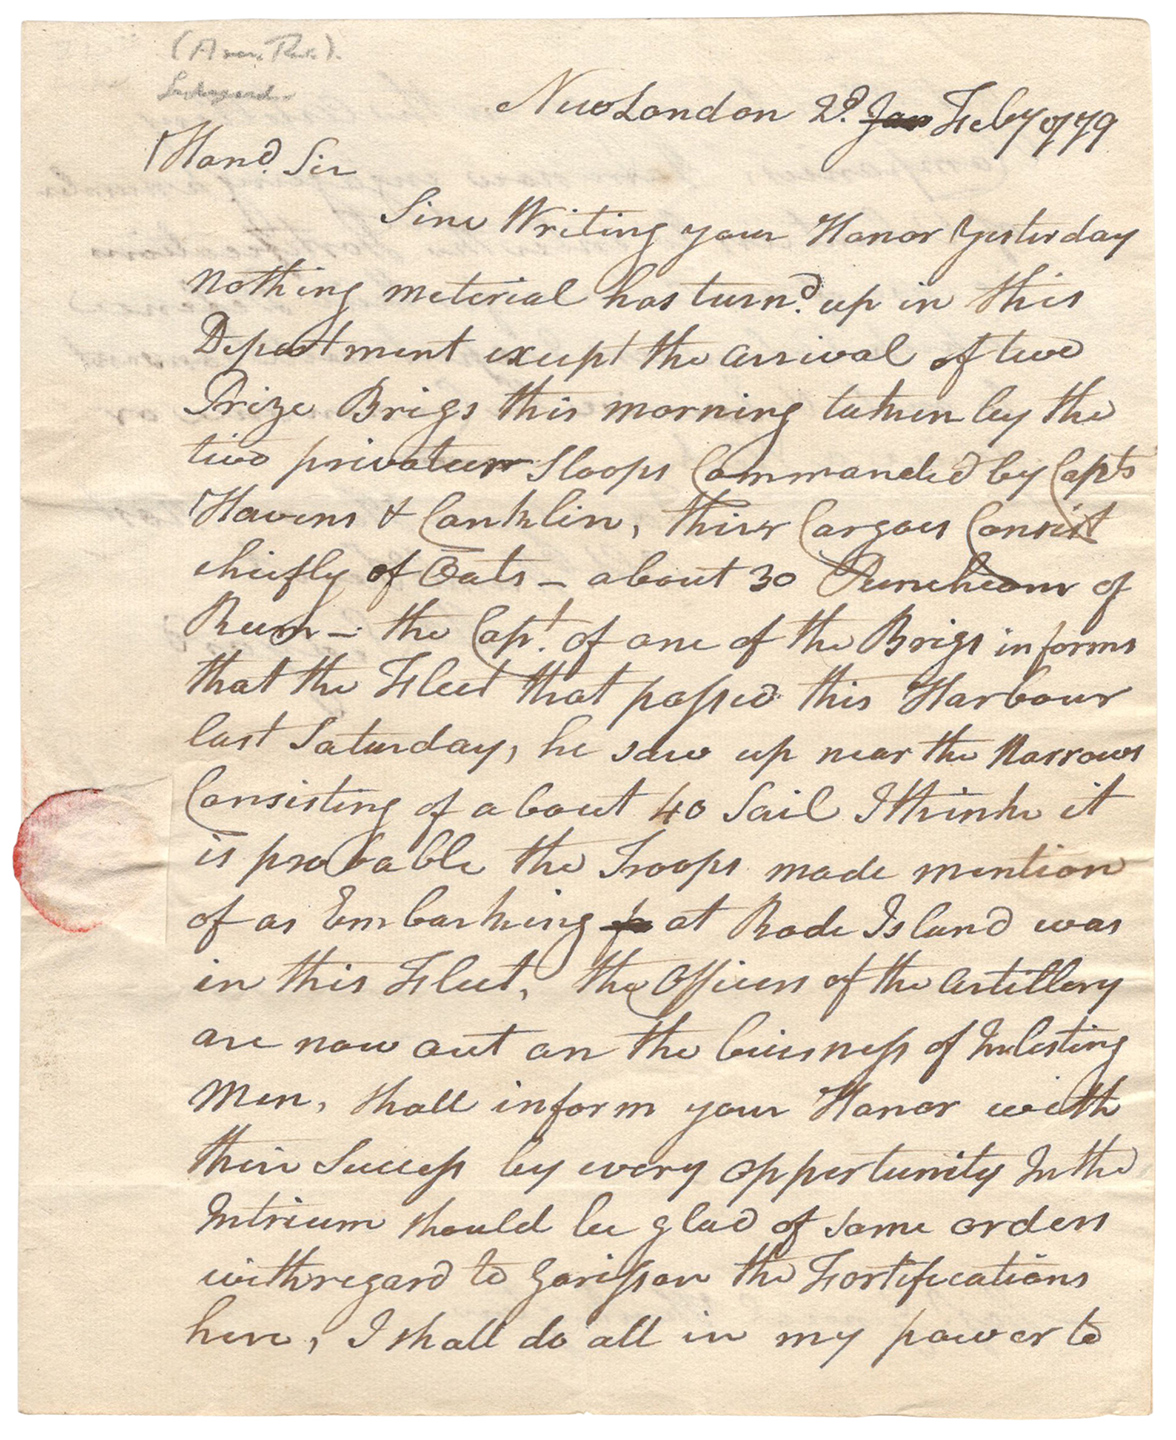 (Amer. Rev.).
New London 2d. Jan Feby 1779
Hond. Sir
Sinc Writing your Honor Yesterday
nothing meterial has turnd. up in this
Depeartment except the arrival of two
Prize Brigs this morning taken by the
two privateer Sloops Commanded by Capts
Havens & Conklin, thier Cargoes Consist
chiefly of Oats – about 30 Puncheons of
Rum – the Capt. of one of the Brigs informs
that the Fleet that passed this Harbour
last Saturday, he saw up near the Narrows
Consisting of about 40 Sail I think it
is probable the Troops made mention
of as Embarking at Rode Island was
in this Fleet, the Officers of the Artillery
are now out on the buisness of Inlisting
Men, shall inform your Honor with
their Success by every opportunity In the
Intrium should be glad of some orders
with regard to Garisson the Fortifications
here, I shall do all in my power to